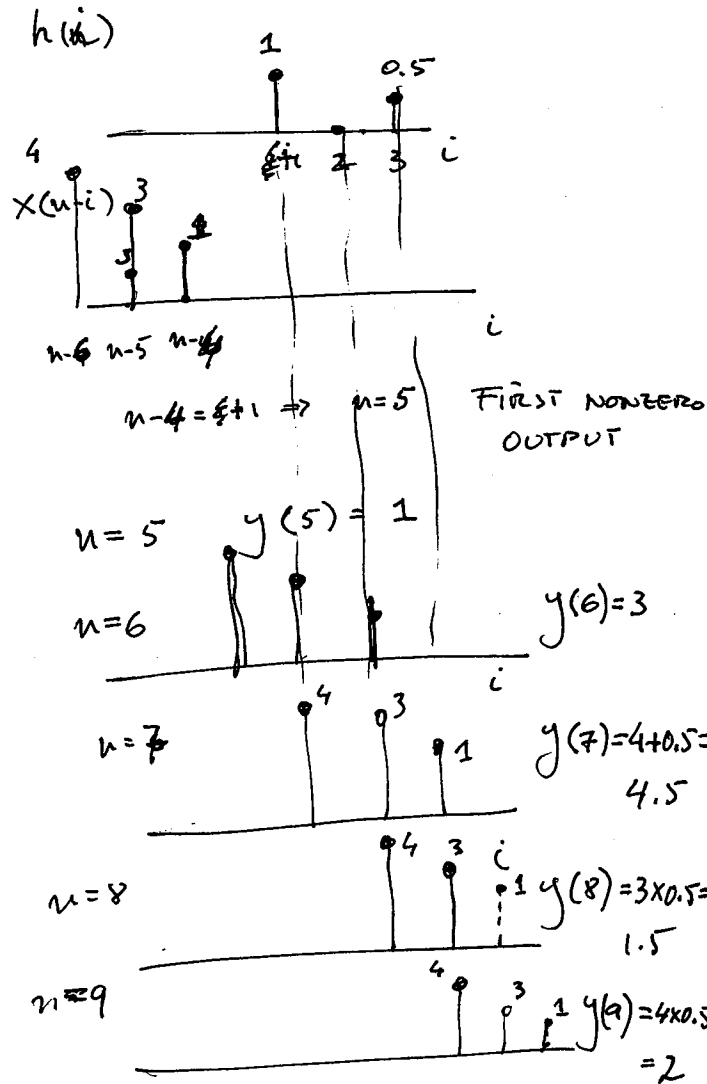 h(i)
1
0.5
2 3 i
4
x(n-i) 3
1
i
n-6 n-5 n-4
n-4 = +1 => n=5 FIRST NONZERO
OUTPUT
n=5 y(5) = 1
n=6 y(6)=3
i
n=7 4 3 1 y(7)=4+0.5=
4.5
n=8 4 3 i 1 y(8)=3x0.5=
1.5
n=9 4 3 1 y(9)=4x0.5
=2